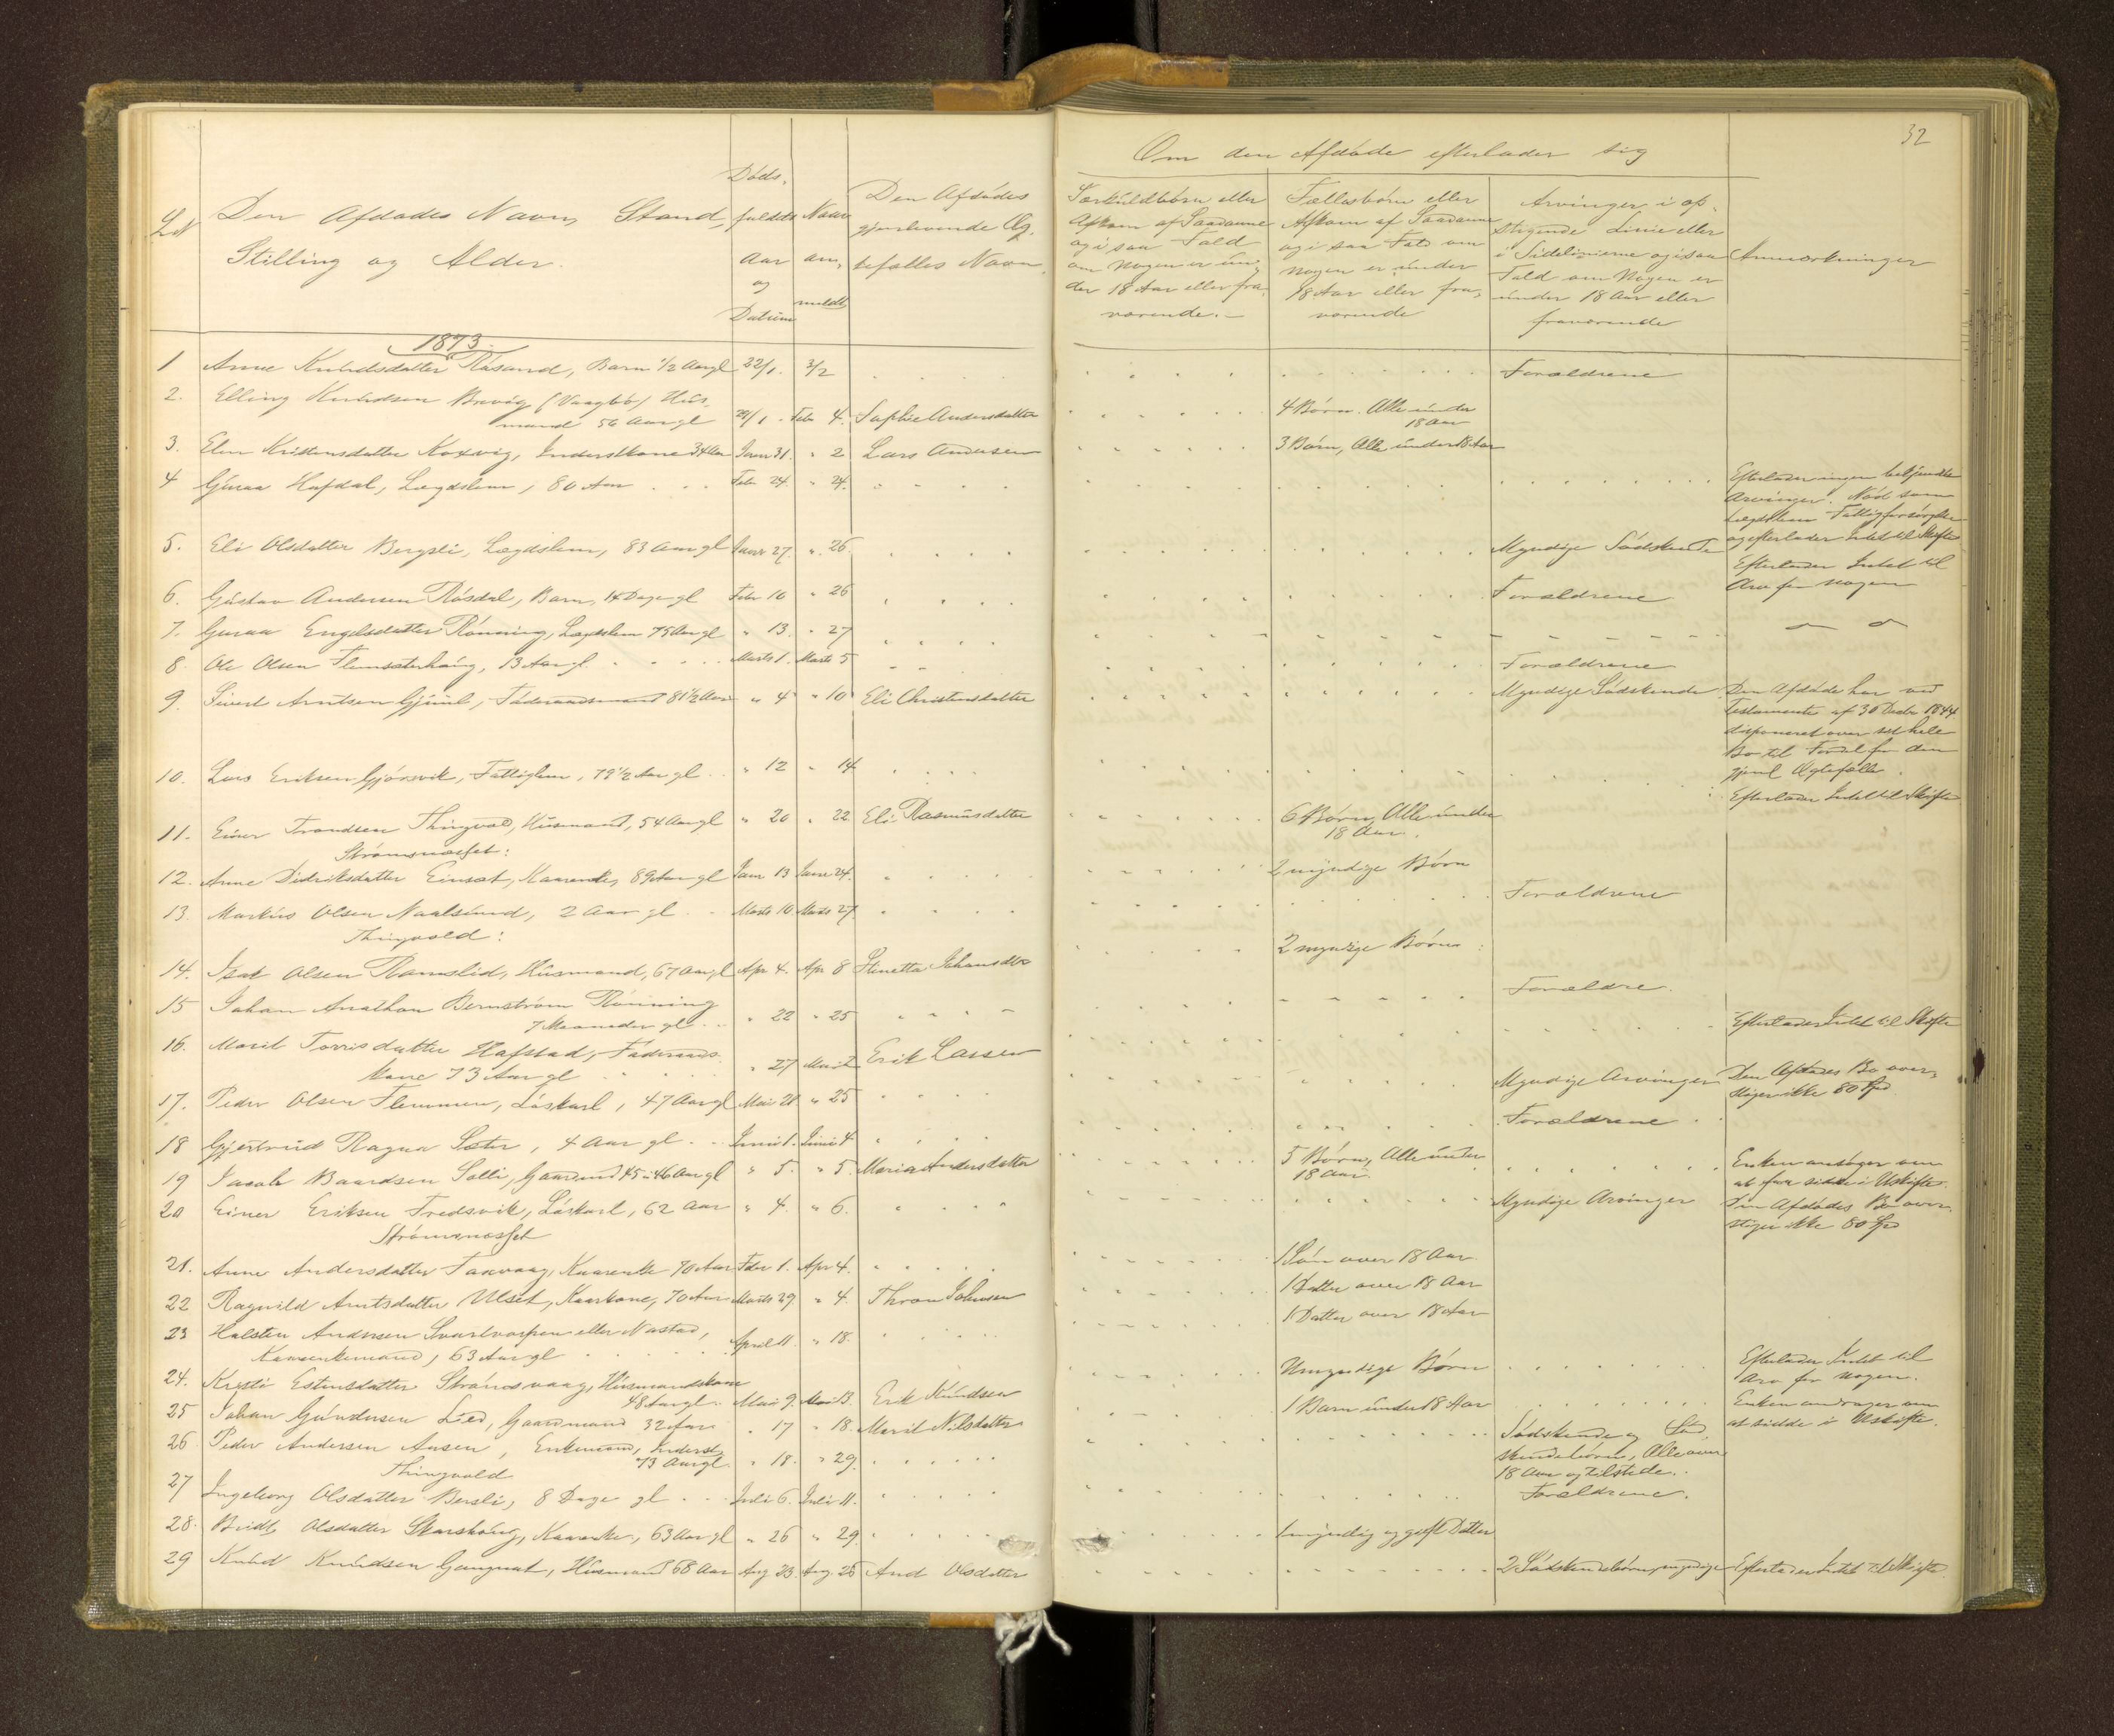 32
Om den Afdøde efterlader sig
LNo
Den Afdødes Navn, Stand,
Stilling og Alder.
Døds-
faldets
Aar
og
Datum
Naar
an-
meldt
Den Afdødes
gjenlevende Æg-
tefælles Navn.
Særkuldbørn eller
Afkom af Saadanne
og i saa Fald
om Nogen er un-
der 18 Aar eller fra-
værende.-
Fællesbørn eller
Afkom af Saadanne
og i saa Fald om
Nogen er under
18 Aar eller fra-
værende
Arvinger i op-
stigende Linie eller
i Sidelinierne og i saa
Fald om Nogen er
under 18 Aar eller
fraværende
Anmærkninger
1873.
1 Anne Knudsdatter Røsand, Barn 1/2 Aar gl 22/1. 3/2 Forældrene
2. Elling Knudsen Brevig (Vaagbø) Hus-
mand 56 Aar gl 24/1. Febr 4. Sophie Andersdatter 4 Børn. Alle under
18 Aar
3. Elen Kristensdatter Koxvig, Inderstkone 34 Aar Janr 31. " 2 Lars Andersen 3 Børn, Alle under 18 Aar
4 Guraa Hafdal, Lægdslem, 80 Aar Febr 24. " 24. Efterlader ingen bekjendte
Arvinger. Nød som
Lægdslem Fattigforsørgelse
og efterlader Intet til Skifte
5. Eli Olsdatter Bergsli, Lægdslem, 83 Aar gl Janr 27. " 26 Myndige Sødskende Efterlader Intet til
Arv for Nogen
6. Gustav Andersen Røsdal, Barn, 14 Dage gl Febr 10 " 26 Forældrene
7. Guraa Engelsdatter Rønning, Lægdslem 75 Aar gl " 13. " 27
8. Ole Olsen Flemsæterhaug, 13 Aar gl. Marts 1. Marts 5 Forældrene
9. Sivert Arntsen Gjüul, Føderaadsmand 81 1/2 Aar " 4 " 10 Eli Christensdatter Myndige Sødskende Den Afdøde har ved
Testamente af 30 Decbr 1844
disponeret over sit hele
Bo til Fordel for den
gjenl Ægtefælle.
10. Lars Eriksen Gjørsvik, Fattiglem, 79 1/2 Aar gl. " 12 " 14 Efterlader Intet til Skifte
11. Einer Trondsen Thingvold, Husmand, 54 Aar gl " 20 " 22. Eli Rasmusdatter 6 Børn, Alle under
18 Aar.
Strømsnæsset:
12. Anne Didriksdatter Einset, Kaarenke, 89 Aar gl Janr 13 Janr 24. 2 myndige Børn
13. Markus Olsen Naalsund, 2 Aar gl Marts 10. Marts 27. Forældrene
Thingvold:
14. Isak Olsen Ramslid, Husmand, 67 Aar gl Apr 4. Apr 8 Johansdtr 2 myndige Børn
15 Johan Bernstrøm Rønning
7 Maaneder gl " 22 " 25 Forældre.
16. Marit Torrisdatter Hafstad, Føderaads-
kone 73 Aar gl " 27 Erik Larsen Efterlader Intet til Skifte
17. Peder Olsen Flemmen, Løskarl, 47 Aar gl Mai 21 " 25 Myndige Arvinger Den Afdødes Bo over-
stiger ikke 80 Spd
18 Gjertrud Ragna Sæter, 4 Aar gl. Juni 1. Juni 4. Forældrene.
19 Jacob Baardsen Solli, Gaardmd 45 à 46 Aar gl " 5. " 5. Maria Andersdatter 5 Børn, Alle under
18 Aar. Enken ansøger om
at faa sidde i Uskifte.
20 Einer Eriksen Fredsvik, Løskarl, 62 Aar " 4. " 6. Myndige Arvinger Den Afdødes Bo over-
stiger ikke 80 Spd
Strømsnæsset
21. Anne Andersdatter Kaarenke 70 Aar Febr 1. Apr 4. 1 Søn over 18 Aar
22 Ragnild Arntsdatter Ulset, Kaarkone, 70 Aar Marts 29. " 4. Thron Johnsen 1 Datter over 18 Aar
23 Halsten Andersen eller Nastad,
Kaarenkemand, 63 Aar gl April 11 " 18. 1 Datter over 18 Aar
24. Kristi Estensdatter Strømsvaag, Husmandskone
48 Aar gl. Mai 9. Mai 13. Erik Knudsen Umyndige Børn Efterlader Intet til
Arv for Nogen.
25 Johan Gundersen Lied, Gaardmand 32 Aar " 17 " 18. Marit Nilsdatter 1 Barn under 18 Aar Enken andrager om
at sidde i Uskifte.
26 Peder Andersen Aasen, Enkemand, Inderst,
73 Aar gl. " 18. " 29. Sødskende og Sød-
skendebørn, Alle over
18 Aar og tilstede.
Thingvold
27 Ingeborg Olsdatter Bersli, 8 Dage gl Juli 6. Juli 11. Forældrene.
28. Olsdatter Skarshaug, Kaarenke, 63 Aar gl " 26 " 29. 1 myndig og gift Datter
29 Knud Knudsen Husmand 68 Aar Aug 23. Aug. 25 And Olsdatter 2 Sødskendebørn, myndige Efterlader Intet til Skifte.